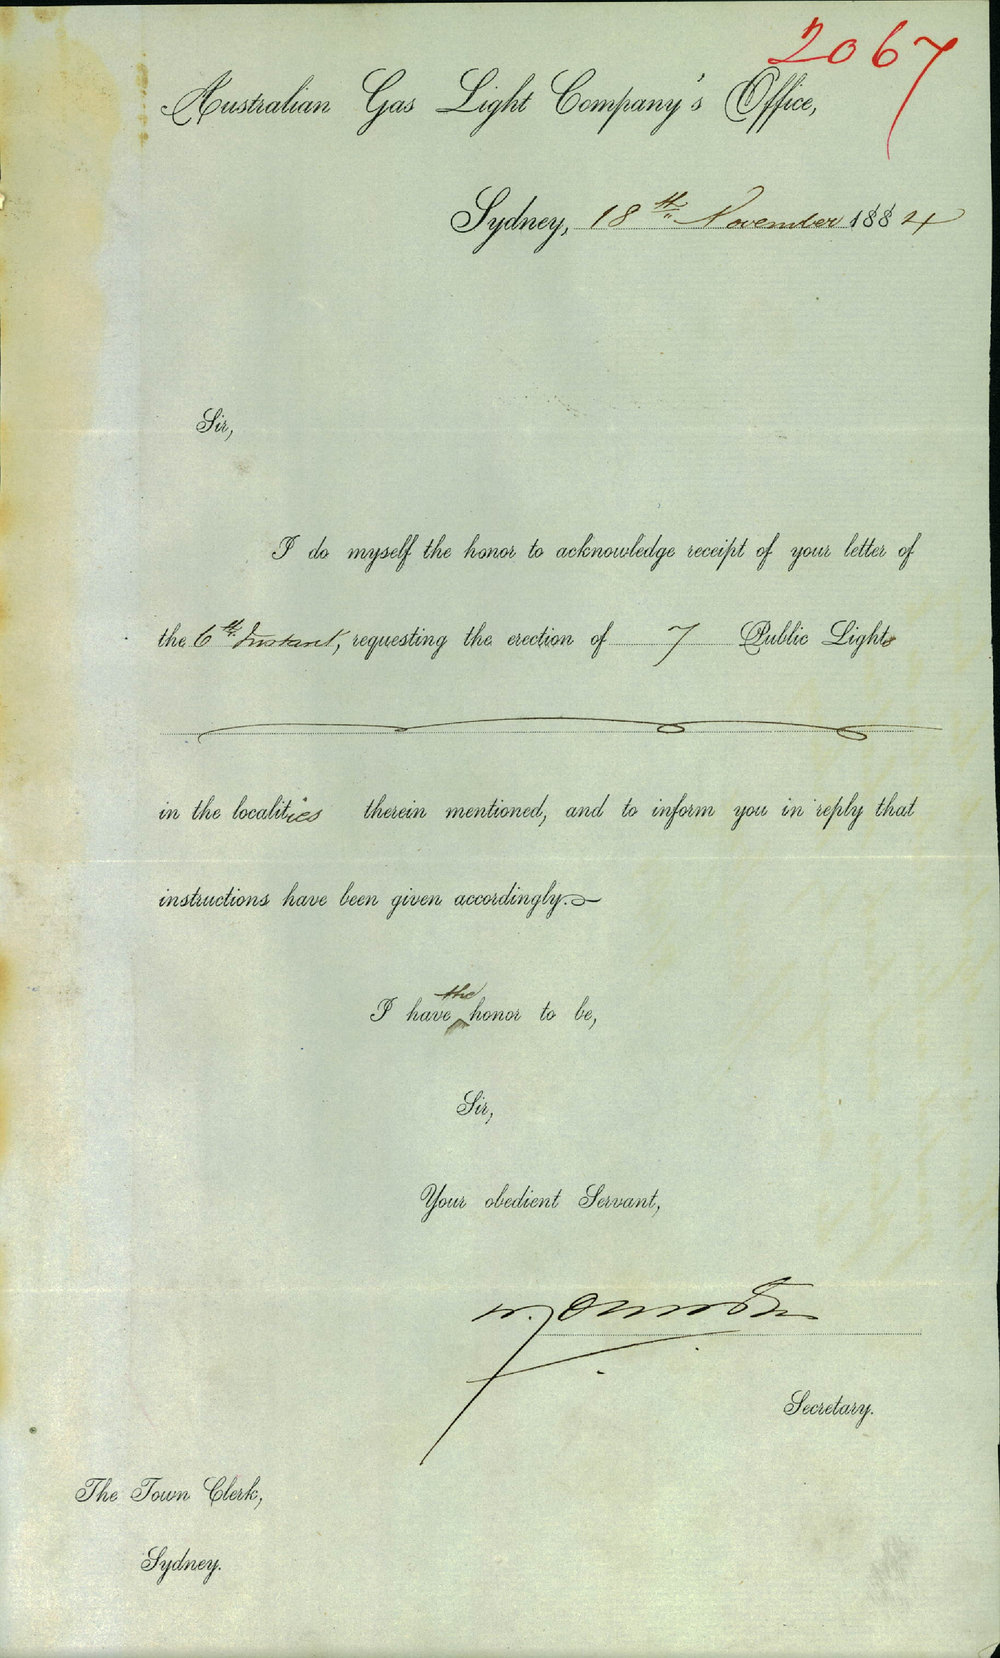 2067
Australian Gas Light Company's Office,
Sydney, 18th November 1884
Sir,
I do myself the honor to acknowledge receipt of your letter of
the 6th Instant, requesting the erection of 7 Public Lights
in the localities therein mentioned, and to inform you in reply that
instructions have been given accordingly.
the
I have honor to be,
Sir,
Your obedient Servant,
Secretary.
The Town Clerk,
Sydney.